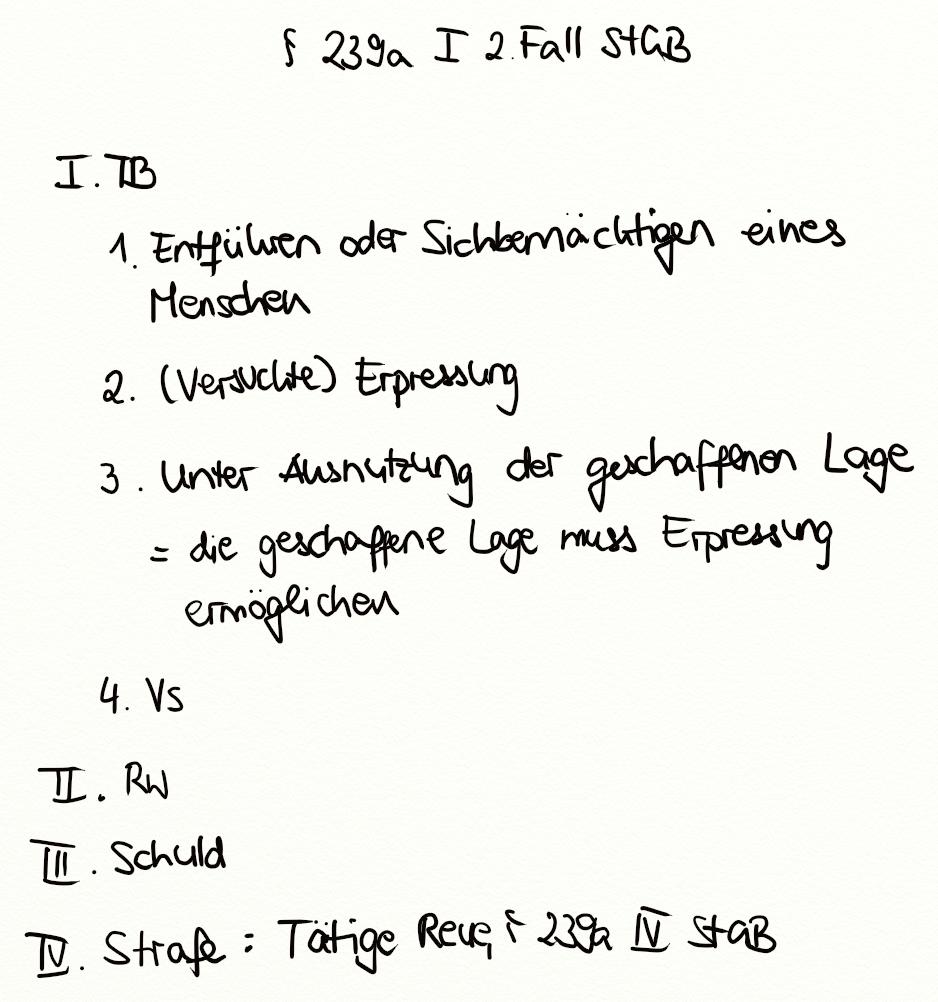 § 239a I 2. Fall StGB
I. TB
1. Entführen oder Sichbemächtigen eines
Menschen
2. (Versuchte) Erpressung
3. Unter Ausnutzung der geschaffenen Lage
= die geschaffene Lage muss Erpressung
ermöglichen
4. Vs
II. RW
III. Schuld
IV. Strafe: Tätige Reue, § 239a IV StGB